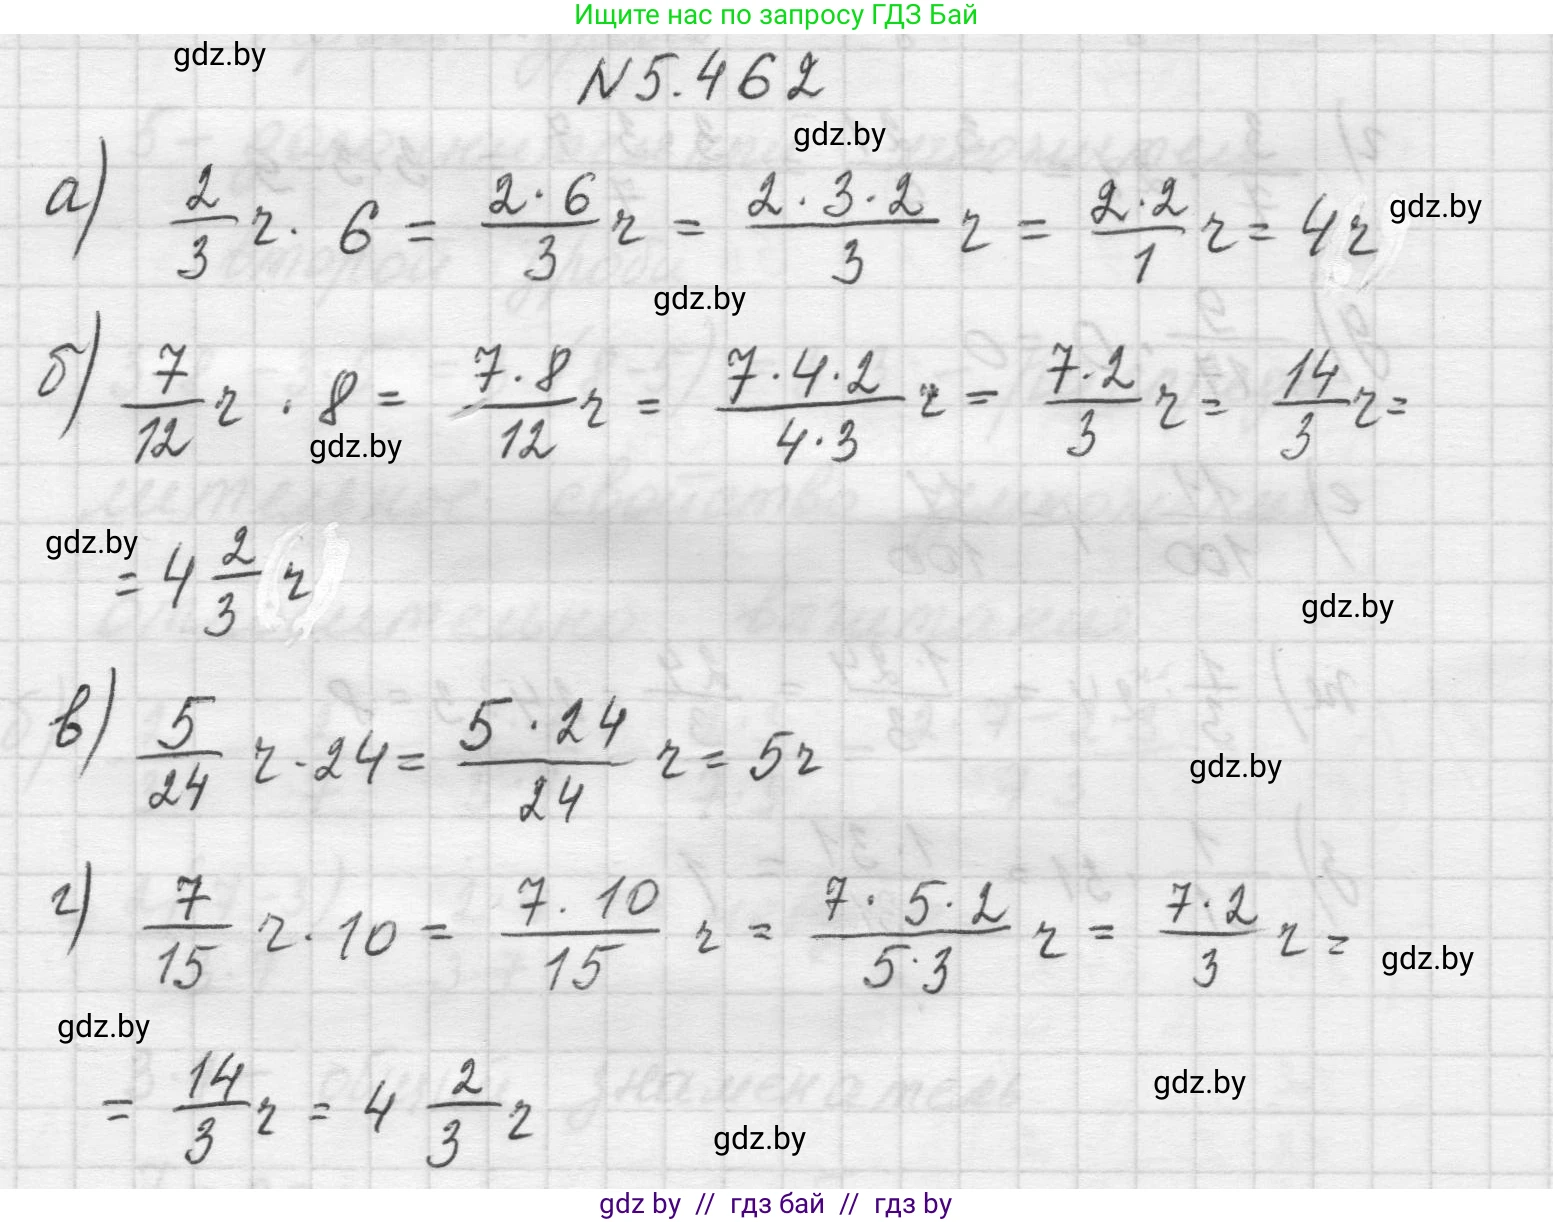 Ищите нас по запросу ГДЗ Бай
gdz.by
N 5.462
gdz.by
а) 2/3 г · 6 = 2·6/3 г = 2·3·2/3 г = 2·2/1 г = 4г
gdz.by
gdz.by
б) 7/12 г · 8 = 7·8/12 г = 7·4·2/4·3 г = 7·2/3 г = 14/3 г =
gdz.by
gdz.by
= 4 2/3 г
gdz.by
в) 5/24 г · 24 = 5·24/24 г = 5г
gdz.by
г) 7/15 г · 10 = 7·10/15 г = 7·5·2/5·3 г = 7·2/3 г =
gdz.by
gdz.by
= 14/3 г = 4 2/3 г
gdz.by
gdz.by
gdz by // гдз бай // gdz by